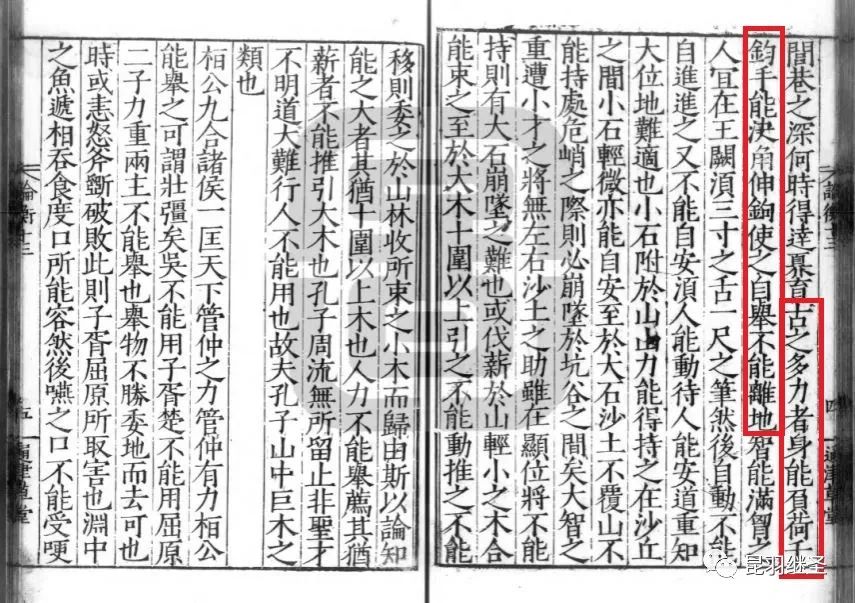 閭巷之深何時得達奡育古之多力者身能負荷
鈞手能決角伸鉤使之自舉不能離地智能滿胷之
人宜在王闕湏三寸之舌一尺之筆然後自動不能
自進進之又不能自安湏人能動待人能安道重知
大位地難適也小石附於山山力能得持之在沙丘
之間小石輕微亦能自安至於大石沙土不覆山不
能持處危峭之際則必崩墜於坑谷之間矣大智之
重遭小才之將無左右沙土之助雖在顯位將不能
持則有大石崩墜之難也或伐薪於山輕小之木合
能束之至於大木十圍以上引之不能動推之不能
移則委之於山林收所束之小木而歸由斯以論知
能之大者其猶十圍以上木也人力不能舉薦其猶
薪者不能推引大木也孔子周流無所留止非聖才
不明道大難行人不能用也故夫孔子山中巨木之
類也
桓公九合諸侯一匡天下管仲之力管仲有力桓公
能舉之可謂壯彊矣吳不能用子胥楚不能用屈原
二子力重兩主不能舉也舉物不勝委地而去可也
時或恚怒斧斲破敗此則子胥屈原所取害也淵中
之魚遞相吞食度口所能容然後嚥之口不能受哽
論衡十三
五
昆羽继圣